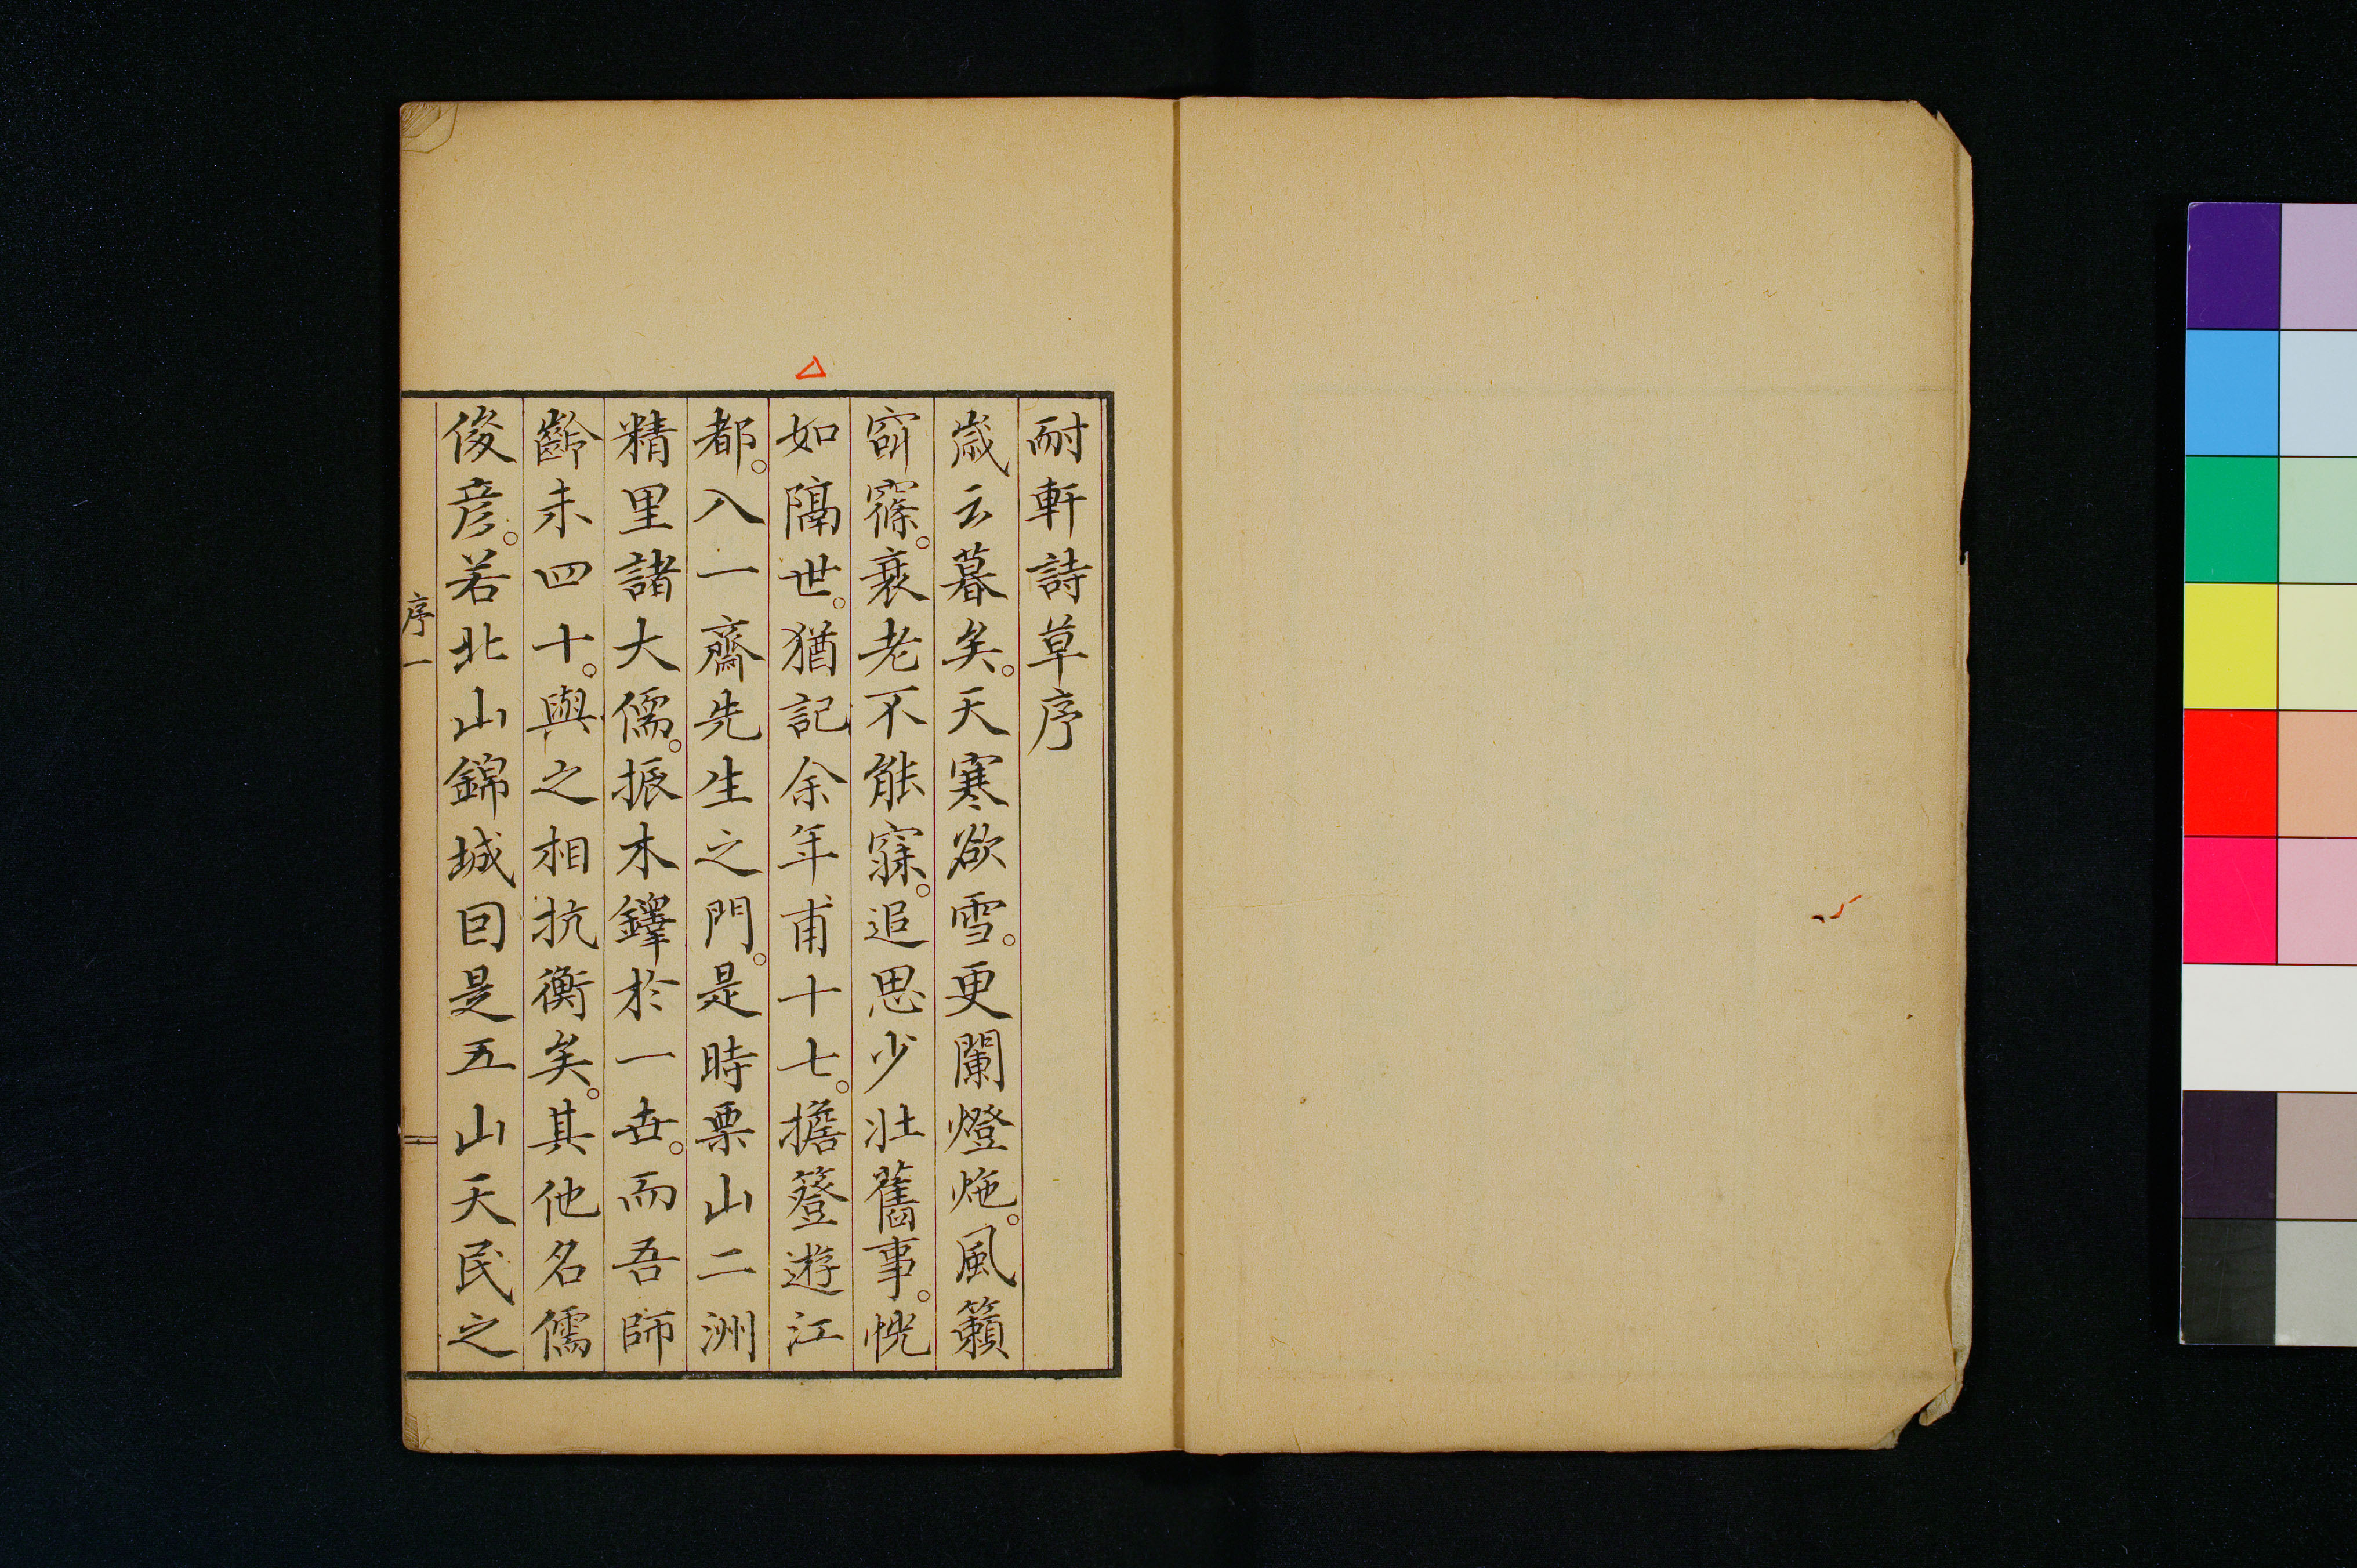 耐軒詩草序
歳云暮矣。天寒欲雪。更闌燈灺。風籟
窅窱。衰老不能寐。追思少壯舊事。恍
如隔世。猶記余年甫十七。擔簦遊江
都。入一齋先生之門。是時栗山二洲
精里諸大儒。振木鐸於一世。而吾師
齡未四十。與之相抗衡矣。其他名儒
俊彦。若北山錦城曰是五山天民之
序一